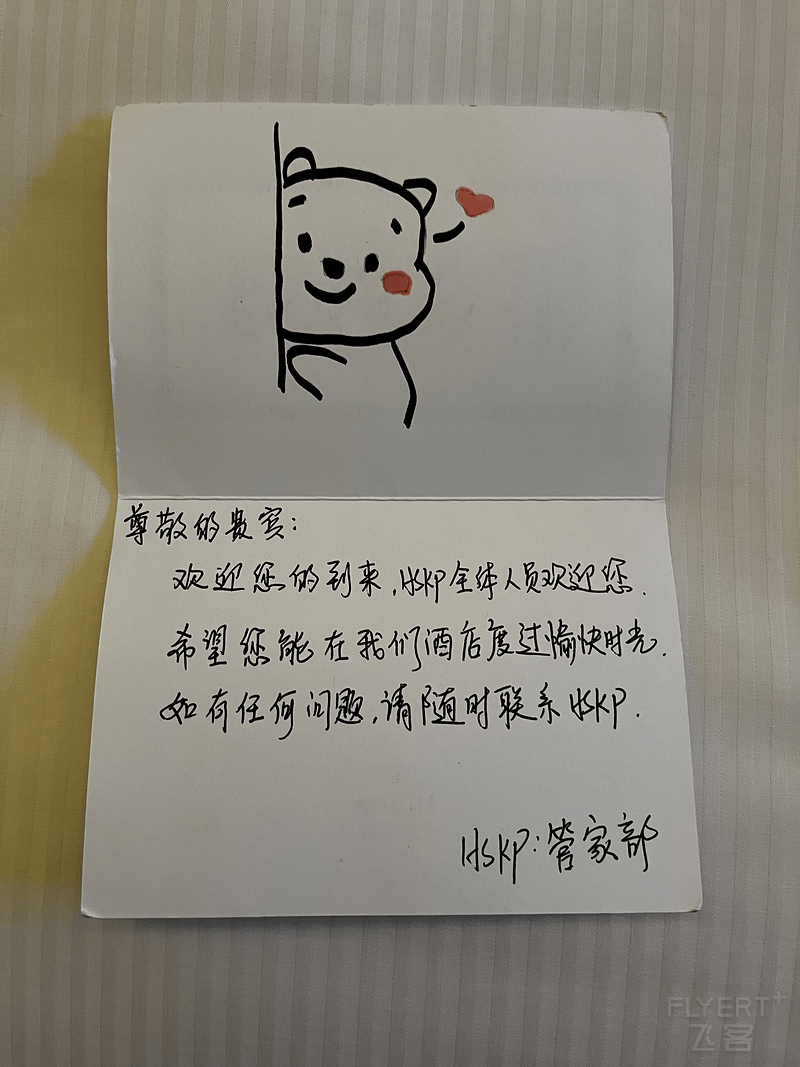 尊敬的贵宾：
欢迎您的到来，HSKP全体人员欢迎您.
希望您能在我们酒店度过愉快时光.
如有任何问题，请随时联系HSKP.
HSKP：管家部
FLYERT+
飞客